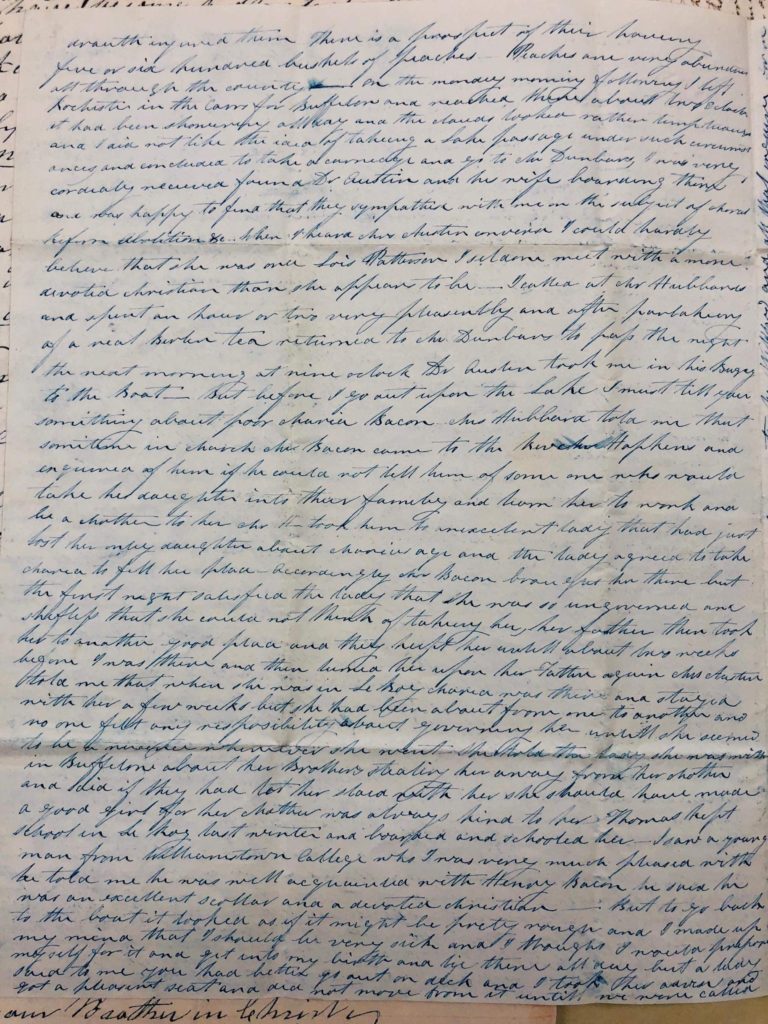 drauth injured them There is a prospect of their having
five or six hundred bushels of peaches — Peaches are very abundant
all through the country — on the monday morning following I left
Rochester in the Carrs for Buffelon and reached there about two oclock
it had been showering all day and the clouds looked rather tempestuous
and I did not like the idea of takeing a Lake passage under such circumst
ances and concluded to take a carriedge and go to Mr Dunbars I was very
cordialy received found Dr Austin and his wife boarding there
and was happy to find that they sympathise with me on the subject of moral
Reform abolition &c. When I heard Mrs Austin converse I could hardly
believe that she was once Lois Patterson I seldome meet with a more
devoted christian than she appears to be — I called at Mr Hubbards
and spent an hour or two very pleasently and after partakeing
of a real Berlin tea returned to Mr Dunbars to pass the night
the next morning at nine oclock Dr Austin took me in his Buggy
to the Boat — But before I go out upon the Lake I must tell you
something about poor Maria Bacon Mrs Hubbard told me that
sometime in March Mr Bacon came to the Rev Mr Hopkins and
enquired of him if he could not tell him of some one who would
take his daughter into their family and learn her to work and
be a Mother to her Mr H— took him to an excelent lady that had just
lost her only daughter about Marias age and the lady agreed to take
Maria to fill her place — Accordingly Mr Bacon brought her there but
the first night satisfied the lady that she was so ungoverned and
shiftless that she could not think of takeing her, her father then took
her to another good place and they kept her untill about two weeks
before I was there and then turned her upon her Father again Mrs Austin
told me that when she was in Le Roy Maria was there and stayed
with her a few weeks but she had been about from one to another and
no one felt any responsibility about governing her untill she seemed
to be a nuisance wherever she went She told the lady she was with
in Buffelone about her Brothers stealing her away from her Mother
and said if they had let her staid with her she should have made
a good girl for her Mother was always kind to her Thomas kept
school in Le Roy last winter and boarded and schooled her — I saw a young
man from Williamstown College who I was very much pleased with
he told me he was well acquainted with Henry Bacon he said he
was an excellent scollar and a devoted christian — But to go back
to the boat it looked as if it might be pretty rough and I made up
my mind that I should be very sick and I thought I would prepare
myself for it and get into my birth and lie there all day but a lady
said to me you had better go out on deck and I took her advice and
got a pleasant seat and did not move from it untill we were called
our Brother in Christ